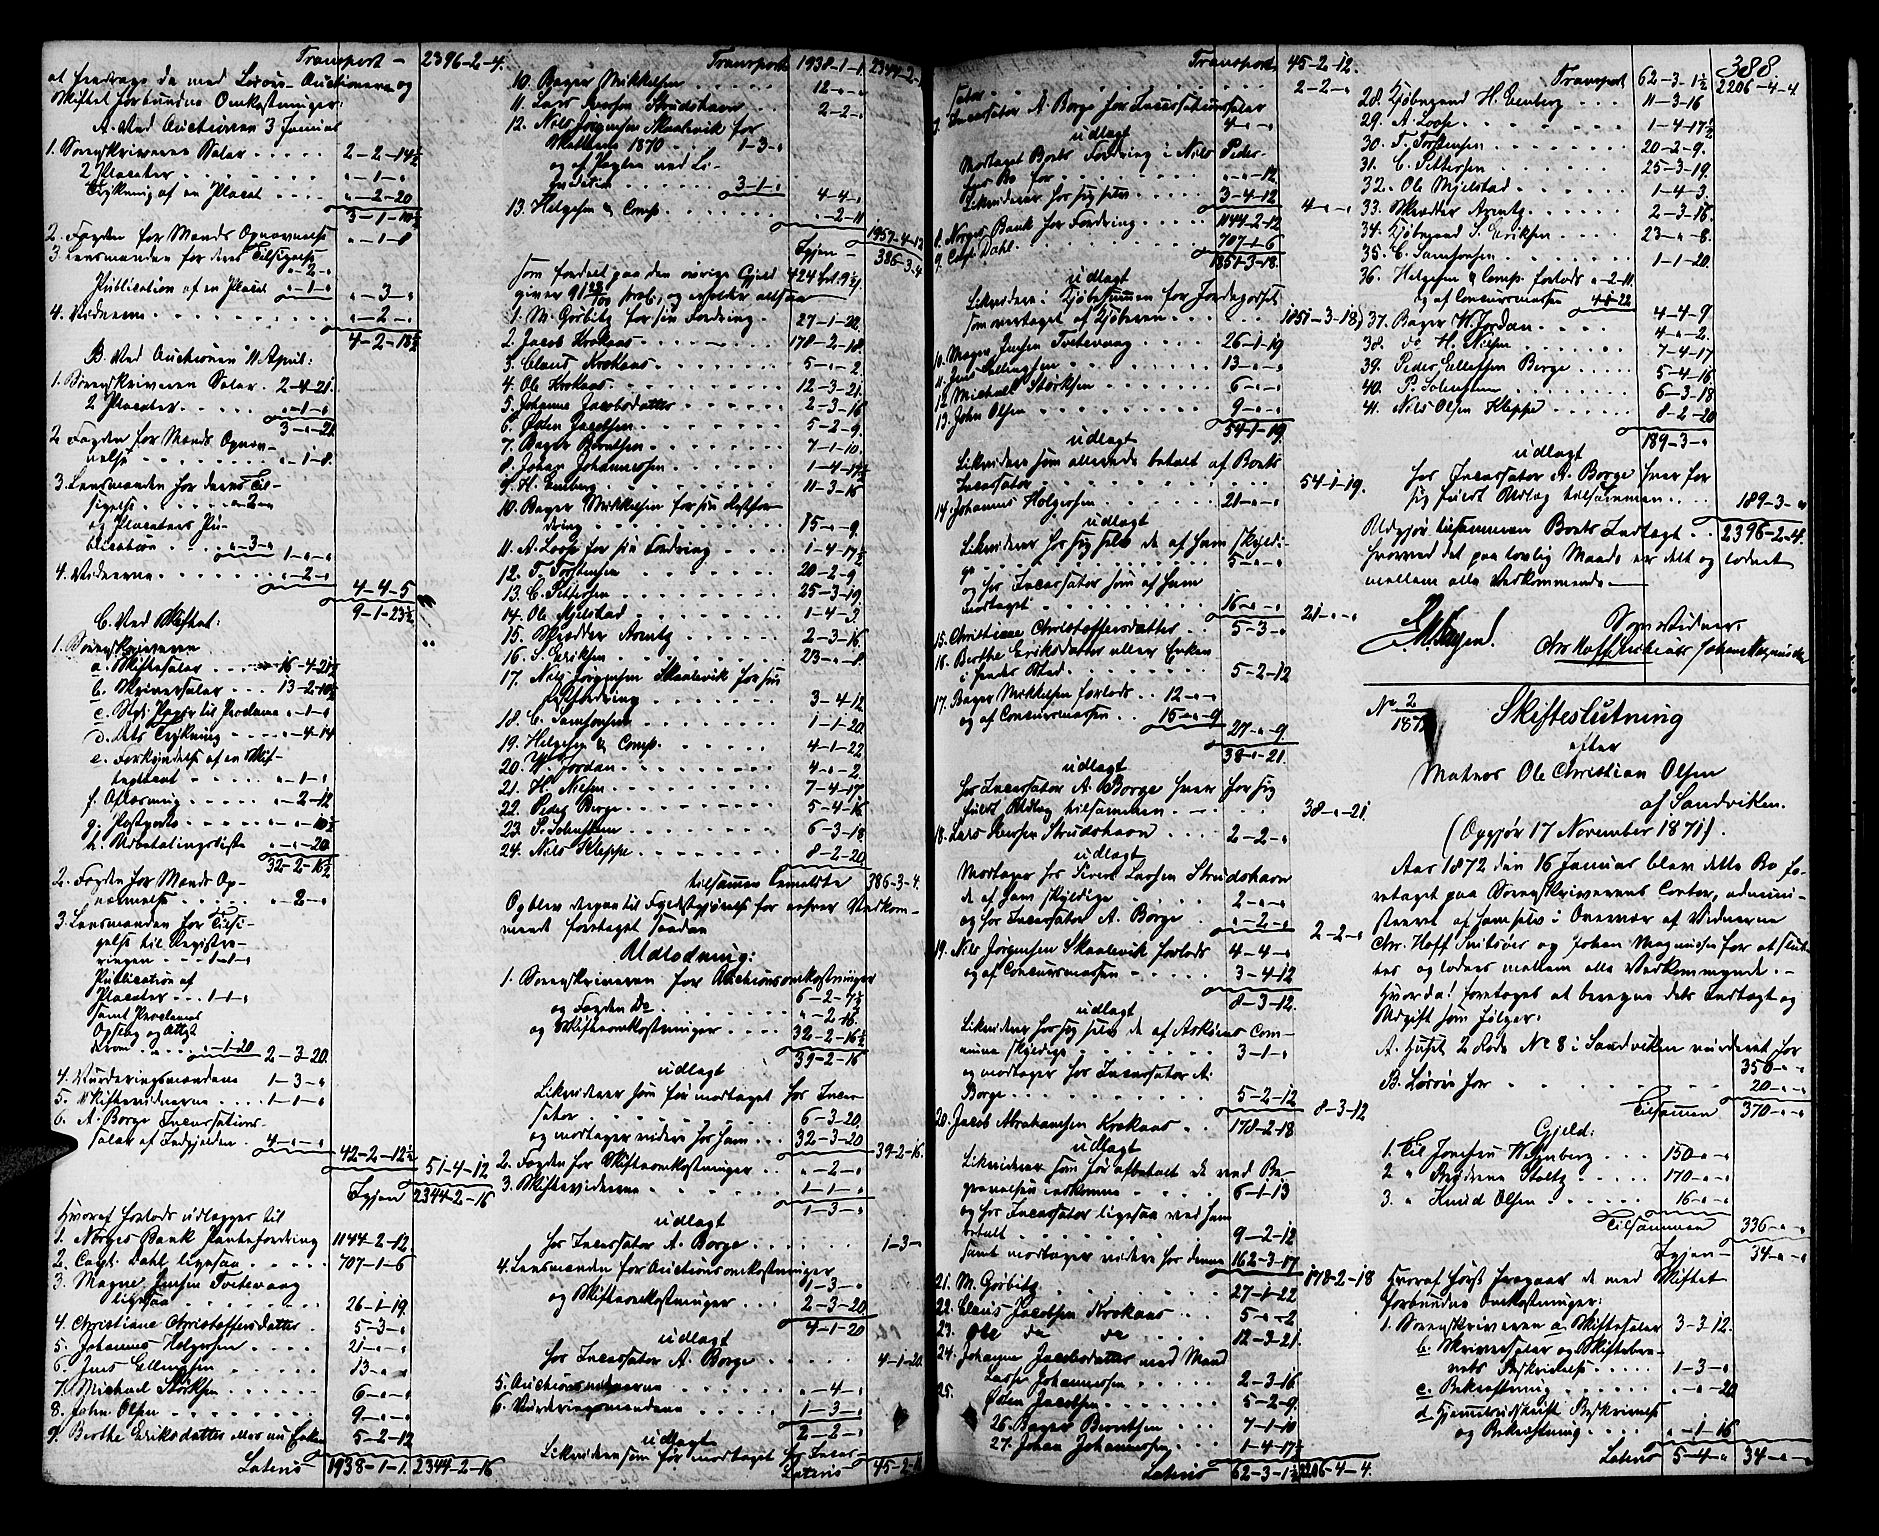 Transport - 2396-2-4.
at fradrage de med Løsøre-Auctionerne og
Skiftet forbundne Omkostninger:
A. Ved Auctionen 3 Januar
1. Sorenskriveren Salar . . . . . 2-2-14½
2 Placater . . . . . "-1-"
Trykning af en Placat . . . "-2-20
3-1-10½
2. Fogden for Mænds Opnævnelse "-1-8
3. Lensmanden for deres Tilsigelse
"-2-"
Publication af en Placat "-1-" "-3-"
4. Vidnerne . . . . . "-2-"
4-2-18½
B. Ved Auctionen 11 April:
1. Sorenskriveren Salar. 2-4-21.
2 Placater . . . . "-1-"
3-"-21.
2. Fogden for Mænds Opnæv-
nelse . . . . . "-1-8.
3. Lensmanden for deres Til-
sigelse . . . . "-2-"
og Placaters Pu-
blication . . . "-3-" 1-"-"
4. Vidnerne . . . . . "-2-"
4-4-5
9-1-23½
C. Ved Skiftet:
1. Sorenskriveren
a. Skiftesalar . . . 16-4-21½
b. Skriversalar . . . 13-2-10½
c. Stpl. Papir til Proclama "-1-"
d. dets Trykning . . . "-4-14
e. Forkyndelse af en Skif-
tegivent . . . "-1-"
f. Aflæsning . . . . "-2-12
g. Postporto . . . . "-"-10½
h. Udbetalingsliste "-"-20
32-2-16½
2. Fogden for Mænds Op-
nævnelse . . . . "-2-"
3. Lensmanden for Tilsi-
gelse til Registre-
ringen . . . 1-1-"
Publication af
Placater . . . 1-1-"
samt Proclamas
Opslag og Attest
derom . . . . "-1-20 2-3-20.
4. Vurderingsmændene 1-3-"
5. Skiftevidnerne . . . 1-1-"
6. A. Borge Incassations-
salar af Indgjelden . 4-"-"
42-2-12½ 51-4-12
Igjen 2344-2-16
Hvoraf forlods udlægges til
1. Norges Bank Pantefordring 1144-2-12
2. Capt. Dahl ligesaa . . . . . 707-1-6
3. Magne Jensen Tvetevaag
ligesaa . . . . . . . 26-1-19
4. Christiane Christoffersdatter . 5-3-"
5. Johannes Holgersen . . . . 21-"-"
6. Jens Ellingsen . . . . 13-"-"
7. Michael Størksen . . . . . 6-"-"
8. John Olsen . . . . . . . 9-"-"
9. Berthe Eriksdatter eller nu Enken 5-2-12
Lateris 1938-1-1. 2344-2-16
Transport 1938-1-1. 2344-2-16
10. Bager Mikkelsen . . . . . 12-"-"
11. Lars Iversen Strudshavn . . 2-2-"
12. Nils Jørgensen Skaalevik for
Skatterne 1870 . . 1-3-"
og af Pagten ved Li-
. . . . . 3-1-" 4-4-"
13. Helgesen & Comp. . . . . . "-2-11
1957-4-12
Igjen - 386-3-4
som fordeelt paa den øvrige Gjeld 424
giver 91 Proc., og erholder altsaa
1. M. Görbitz for sin Fordring . 27-1-22
2. Jacob Krokaas . . . . . . 178-2-18
3. Claus Krokaas . . . . . . 5-"-2
4. Ole Krokaas . . . . . . . 12-3-21.
5. Johanne Jacobsdatter . . . . 2-3-16
6. Østen Jacobsen . . . . . . 5-2-9.
7. Bager Berentsen . . . . . . 7-1-10.
8. Johan Johannessen . . . . . 1-4-17½
9. H. Enberg . . . . . . . . 11-3-16
10. Bager Mikkelsen for sin Restfor-
dring . . . . . . . . . 15-"-9.
11. A. Loose for sin Fordring . . . 1-4-17½
12. T. Torstensen . . . . . . . 20-2-9.
13. C. Pettersen . . . . . . . 25-3-19
14. Ole Mjelstad . . . . . . . 1-4-3.
15. Skrædder Arentz . . . . . . 2-3-16
16. S. Eriksen . . . . . . . . 23-"-8.
17. Nils Jørgensen Skaalevik for sin
Restfordring . . . . . . . 3-4-12
18. C. Samsonsen . . . . . . . 1-1-20.
19. Helgesen & Comp. . . . . . 4-1-22
20. W. Jordan . . . . . . . . 4-"-2.
21. H. Nilsen . . . . . . . . 7-4-17
22. Peder Berge . . . . . . . 5-4-16
23. P. Solensteen . . . . . . . 6-3-18
24. Nils Kleppe . . . . . . . 8-2-20
tilsammen bemeldte 386-3-4.
Og blev derpaa til Fyldestgjørelse for enhver Vedkom-
mende foretaget saadan
Udlodning:
1. Sorenskriveren for Auctionsomkostninger
6-2-7½
og Fogden Do . . . . . . "-2-16.
og Skifteomkostninger . . . 32-2-16½
39-2-16
udlagt
Likviderer som før modtaget hos Incas-
sator . . . . . . 6-3-20.
og modtager videre hos ham . . 32-3-20 39-2-16.
2. Fogden for Skifteomkostninger . . "-2-"
3. Skiftevidnerne . . . . . . 1-1-"
1-3-"
udlagt
hos Incassator A. Borge . . . . . . 1-3-"
4. Lensmanden for Auctionsomkostninger
1-3-"
og Skifteomkostninger . . . 2-3-20
4-1-20
udlagt
hos Incassator A. Borge . . . . . 4-1-20.
5. Auctionsvidnerne . . . . . . "-4-"
6. Vurderingsmændene . . . . . 1-3-"
2-2-"
udlagt
Likviderer som før modtaget hos Incas-
Lateris 45-2-12
Transport 45-2-12.
sator . . . . . . . . . . . 2-2-"
7. Incassator A. Borge for Incassationssalar
4-"-"
udlagt
Modtaget Boets Fordring i Nils Peder-
sens Bo for . . . . . . "-"-12
Likviderer hos sig selv . . . . 3-4-12 4-"-"
8. Norges Bank for Fordring . . . 1144-2-12
9. Capt. Dahl . . . . . . . . 707-1-6
1851-3-18.
udlagt
Likviderer i Kjøbesummen for Jordegodset
som overtaget af Kjøberen . . . . . 1851-3-18
10. Magne Jensen Tvetevaag . . . . 26-1-19
11. Jens Ellingsen . . . . . . . 13-"-"
12. Michael Størksen . . . . . . 6-"-"
13. John Olsen . . . . . . . . 9-"-"
54-1-19.
udlagt
Likviderer som allerede betalt af Boets
Incassator . . . . . . . . . 54-1-19.
14. Johannes Holgersen . . . . . 21-"-"
udlagt
Likviderer hos sig selv de af ham skyldi-
ge . . . . . . . . . 5-"-"
og hos Incassator som af ham
modtaget . . . . . . . 16-"-" 21-"-"
15. Christiane Christoffersdatter . . . 5-3-"
16. Berthe Eriksdatter eller Enken
i hendes Sted . . . . . . 5-2-12
17. Bager Mikkelsen forlods . . 12-"-"
og af Concursmassen . . 15-"-9
27-"-9.
38-"-21.
udlagt
hos Incassator A. Borge hver for sig
udlæg tilsammen . . . . 38-"-21.
18. Lars Iversen Strudshavn . . . . 2-2-"
udlagt
Modtager hos Sivert Larsen Strudshavn
de af ham skyldige . . . . 2-"-"
og hos Incassator A. Borge . . . "-2-" 2-2-"
19. Nils Jørgensen Skaalevik forlods 4-4-"
og af Concursmassen . . . . 3-4-12
8-3-12.
udlagt
Likviderer hos sig selv de af Askøens Com-
mune skyldige . . . . . . 3-1-"
og modtager hos Incassator A.
Borge . . . . . . . . 5-2-12 8-3-12
20. Jacob Abrahamsen Krokaas . . . 178-2-18
udlagt
Likviderer som før afbetalt de ved Be-
gravelsen . . . . 6-1-13
og hos Incassator ligesaa ved ham
betalt . . . . . . . . 9-2-12
samt modtager videre hos denne 162-3-17 178-2-18
21. M. Görbitz . . . . . . . . 27-1-22
22. Claus Jacobsen Krokaas . . . 5-"-2
23. Ole do do . . . 12-3-21.
24. Johanne Jacobsdatter med Mand
Lasse Johannessen . . . . . 2-3-16
25. Østen Jacobsen . . . . . . 5-2-9.
26. Bager Berentsen . . . . . . 7-1-10
27. Johan Johannessen . . . . . 1-4-17½
Lateris 62-3-1½ 2206-4-4.
388
Transport 62-3-1½ 2206-4-4
28. Kjøbmand H. Enberg . . . 11-3-16
29. A. Loose . . . . . . . . 1-4-17½
30. T. Torstensen . . . . . . . 20-2-9.
31. C. Pettersen . . . . . . . 25-3-19
32. Ole Mjelstad . . . . . . . 1-4-3.
33. Skrædder Arentz . . . . . . 2-3-16.
34. Kjøbmand S. Eriksen . . . . 23-"-8.
35. C. Samsonsen . . . . . . . 1-1-20.
36. Helgesen & Comp. forlods "-2-11
og af Concursmassen 4-1-22
4-4-9
37. Bager W. Jordan . . . . . 4-"-2.
38. do H. Nilsen . . . . . . . 7-4-17
39. Peder Ellefsen Berge . . . . 5-4-16
40. P. Solensteen . . . . . . . 6-3-18
41. Nils Olsen Kleppe . . . . . 8-2-20
189-3-"
udlagt
hos Incassator A. Borge hver for
sig Udlæg tilsammen . . . 189-3-"
Udgjør tilsammen Boets Indtægt . . 2396-2-4.
hvorved det paa lovlig Maade er delt og lodnet
mellem alle Vedkommende.
Som Vidner:
Chr. Hoff Snitøver Johan Magnussen
No 2/187
Skifteslutning
efter
Matros Ole Christian Olsen
af Sandviken.
(Opgjør 17 November 1871).
Aar 1872 den 16 Januar blev dette Bo fo-
retaget paa Sorenskriverens Contor, admini-
streret af ham selv i Overvær af Vidnerne
Chr. Hoff Snitøver og Johan Magnussen for at slut-
tes og lodnes mellem alle Vedkommende. -
Hvorda! foretoges at beregne dets Indtægt og
Udgift som følger:
A. Huset 2 Rode No 8 i Sandviken vurderet for
350-"-"
B. Løsøre for . . . . . . . . 20-"-"
Tilsammen 370-"-"
Gjeld:
1. Til Jonefru Wesenberg . . . 150-"-"
2 " Brødrene Stoltz . . . . . 170-"-"
3. " Knud Olsen . . . . . . 16-"-"
Tilsammen 336-"-"
Igjen - 34-"-"
Hvoraf først fragaar de med Skiftet
forbundne Omkostninger:
1. Sorenskriveren a. Skiftesalar 3-3-12.
b. Skriversalar og Skiftebre-
vets Beskrivelse . . . . 1-3-"
c. Bekræftning . . . . . "-"-20
d. Beskrivelse
og Bekræftning . . . . "-1-16
Lateris 5-4-" 34-"-"